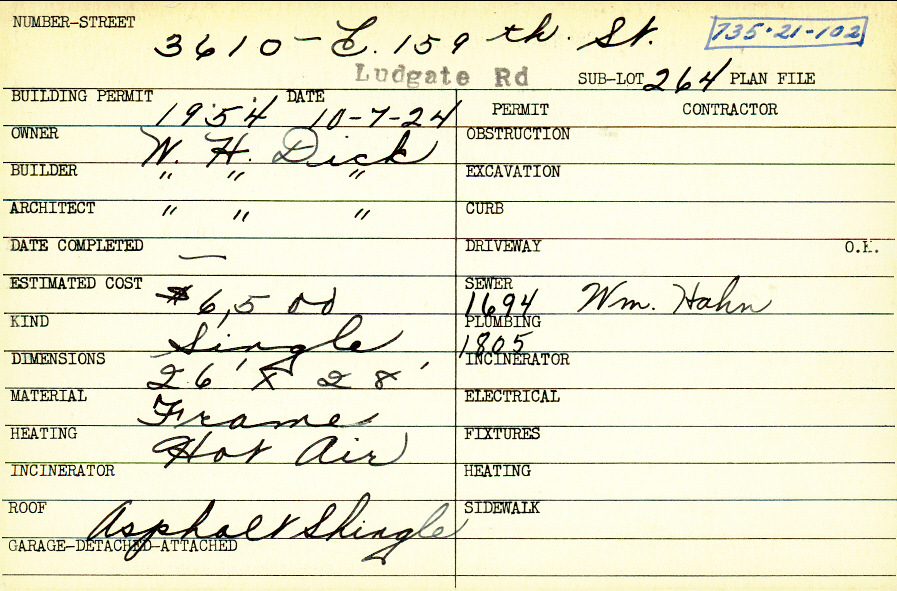 NUMBER-STREET 3610-E. 159 th. St. 735·21-102
Ludgate Rd SUB-LOT 264 PLAN FILE
BUILDING PERMIT 1954 DATE 10-7-24 PERMIT CONTRACTOR
OWNER W. H. Dick OBSTRUCTION
BUILDER " " " EXCAVATION
ARCHITECT " " " CURB
DATE COMPLETED — DRIVEWAY O.K.
ESTIMATED COST $6,500 SEWER 1694 Wm. Hahn
KIND Single PLUMBING 1805
DIMENSIONS 26' X 28' INCINERATOR
MATERIAL Frame ELECTRICAL
HEATING Hot Air FIXTURES
INCINERATOR HEATING
ROOF Asphalt Shingle SIDEWALK
GARAGE-DETACHED-ATTACHED